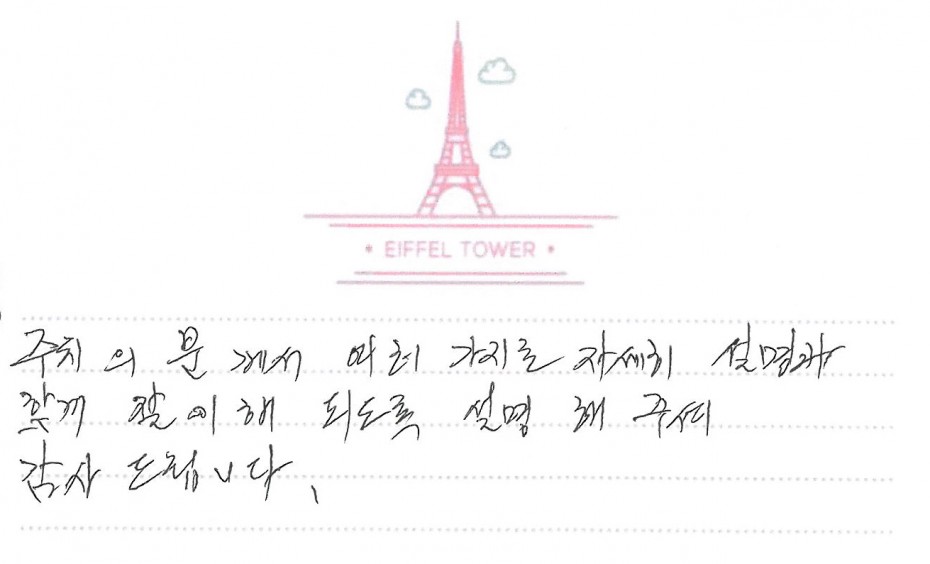 • EIFFEL TOWER •
주치의 분 께서 여러 가지로 자세히 설명과
함께 잘 이해 되도록 설명 해 주셔
감사 드립니다.